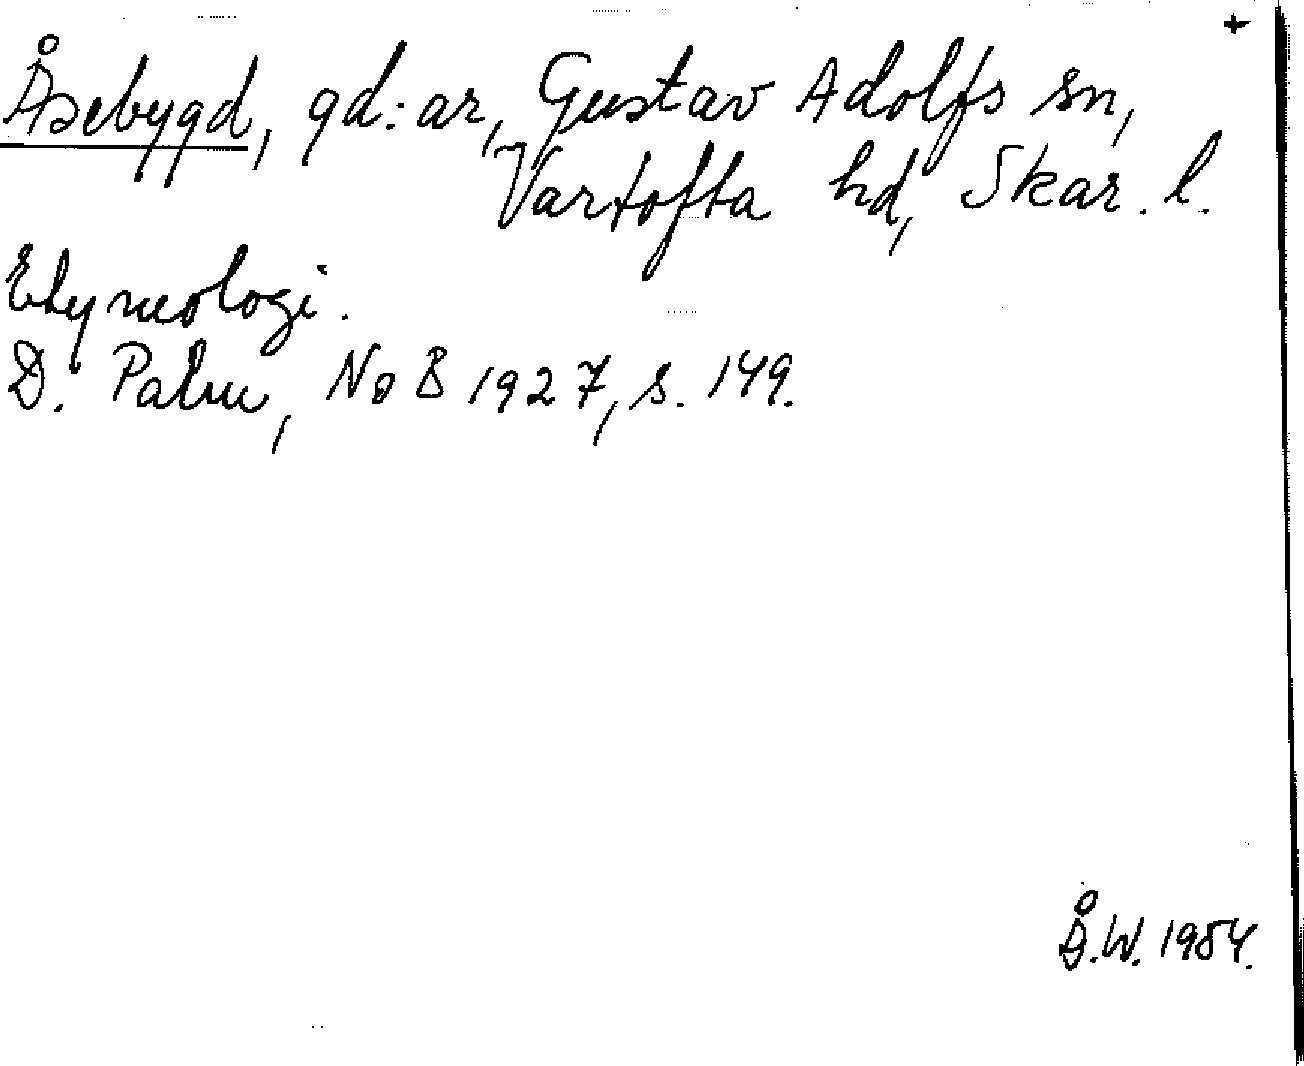 +
Åsebygd, gd:ar, Gustav Adolfs sn,
Vartofta hd, Skar. l.
Etymologi.
D. Palm, NoB 1927, s. 149.
Å.W. 1954.